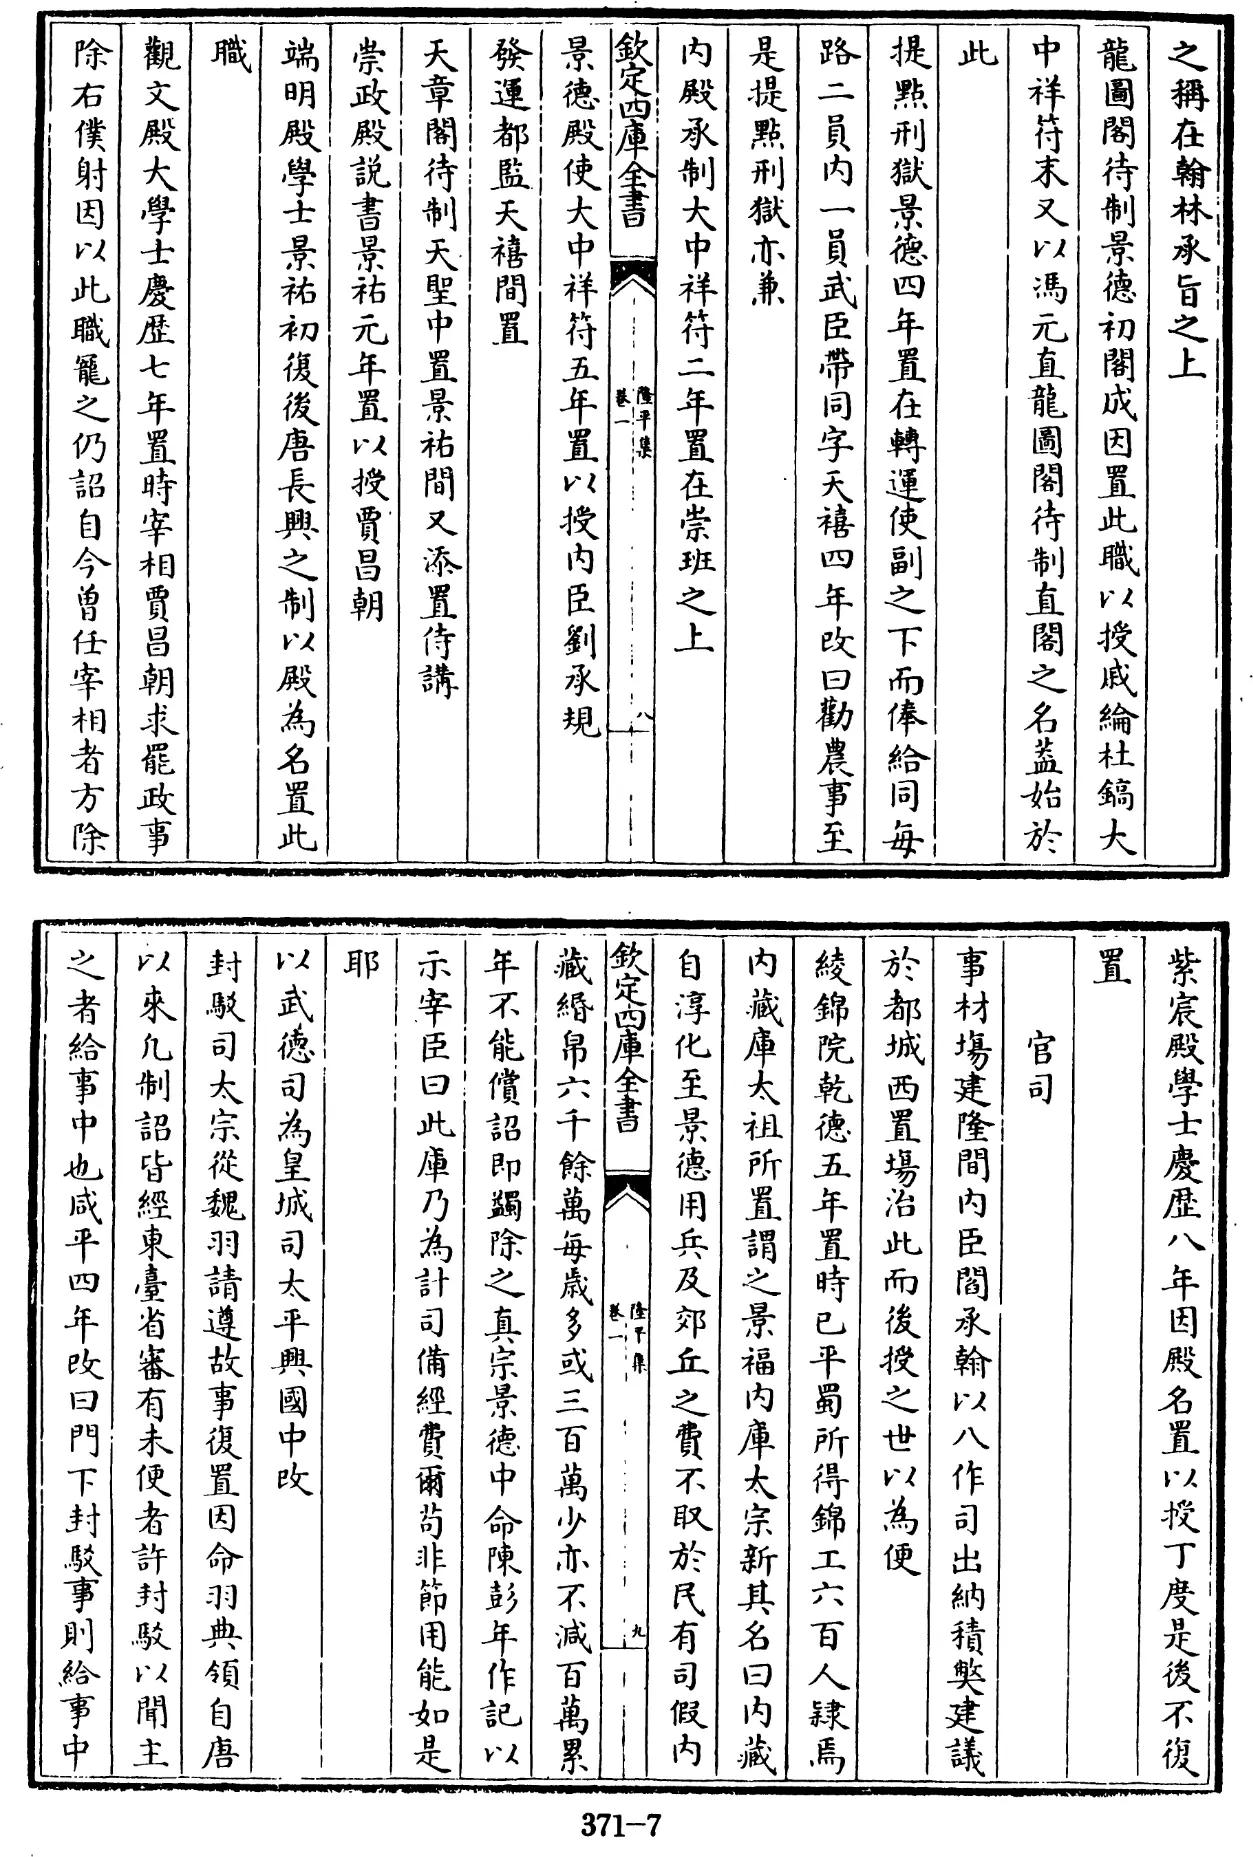 之稱在翰林承旨之上
龍圖閣待制景德初閣成因置此職以授戚綸杜鎬大
中祥符末又以馮元直龍圖閣待制直閣之名蓋始於
此
提點刑獄景德四年置在轉運使副之下而俸給同每
路二員内一員武臣帶同字天禧四年改曰勸農事至
是提點刑獄亦兼
内殿承制大中祥符二年置在崇班之上
欽定四庫全書
隆平集
卷一
八
景德殿使大中祥符五年置以授内臣劉承規
發運都監天禧間置
天章閣待制天聖中置景祐間又添置侍講
崇政殿説書景祐元年置以授賈昌朝
端明殿學士景祐初復後唐長興之制以殿為名置此
職
觀文殿大學士慶歴七年置時宰相賈昌朝求罷政事
除右僕射因以此職寵之仍詔自今曽任宰相者方除
紫宸殿學士慶歴八年因殿名置以授丁度是後不復
置
官司
事材塲建隆間内臣閻承翰以八作司出納積弊建議
於都城西置塲治此而後授之世以為便
綾錦院乾德五年置時已平蜀所得錦工六百人隸焉
内藏庫太祖所置謂之景福内庫太宗新其名曰内藏
自淳化至景德用兵及郊丘之費不取於民有司假内
欽定四庫全書
隆平集
卷一
九
藏緡帛六千餘萬每歳多或三百萬少亦不減百萬累
年不能償詔即蠲除之真宗景德中命陳彭年作記以
示宰臣曰此庫乃為計司備經費爾苟非節用能如是
耶
以武德司為皇城司太平興國中改
封駁司太宗從魏羽請遵故事復置因命羽典領自唐
以來凡制詔皆經東臺省審有未便者許封駁以聞主
之者給事中也咸平四年改曰門下封駁事則給事中
371-7